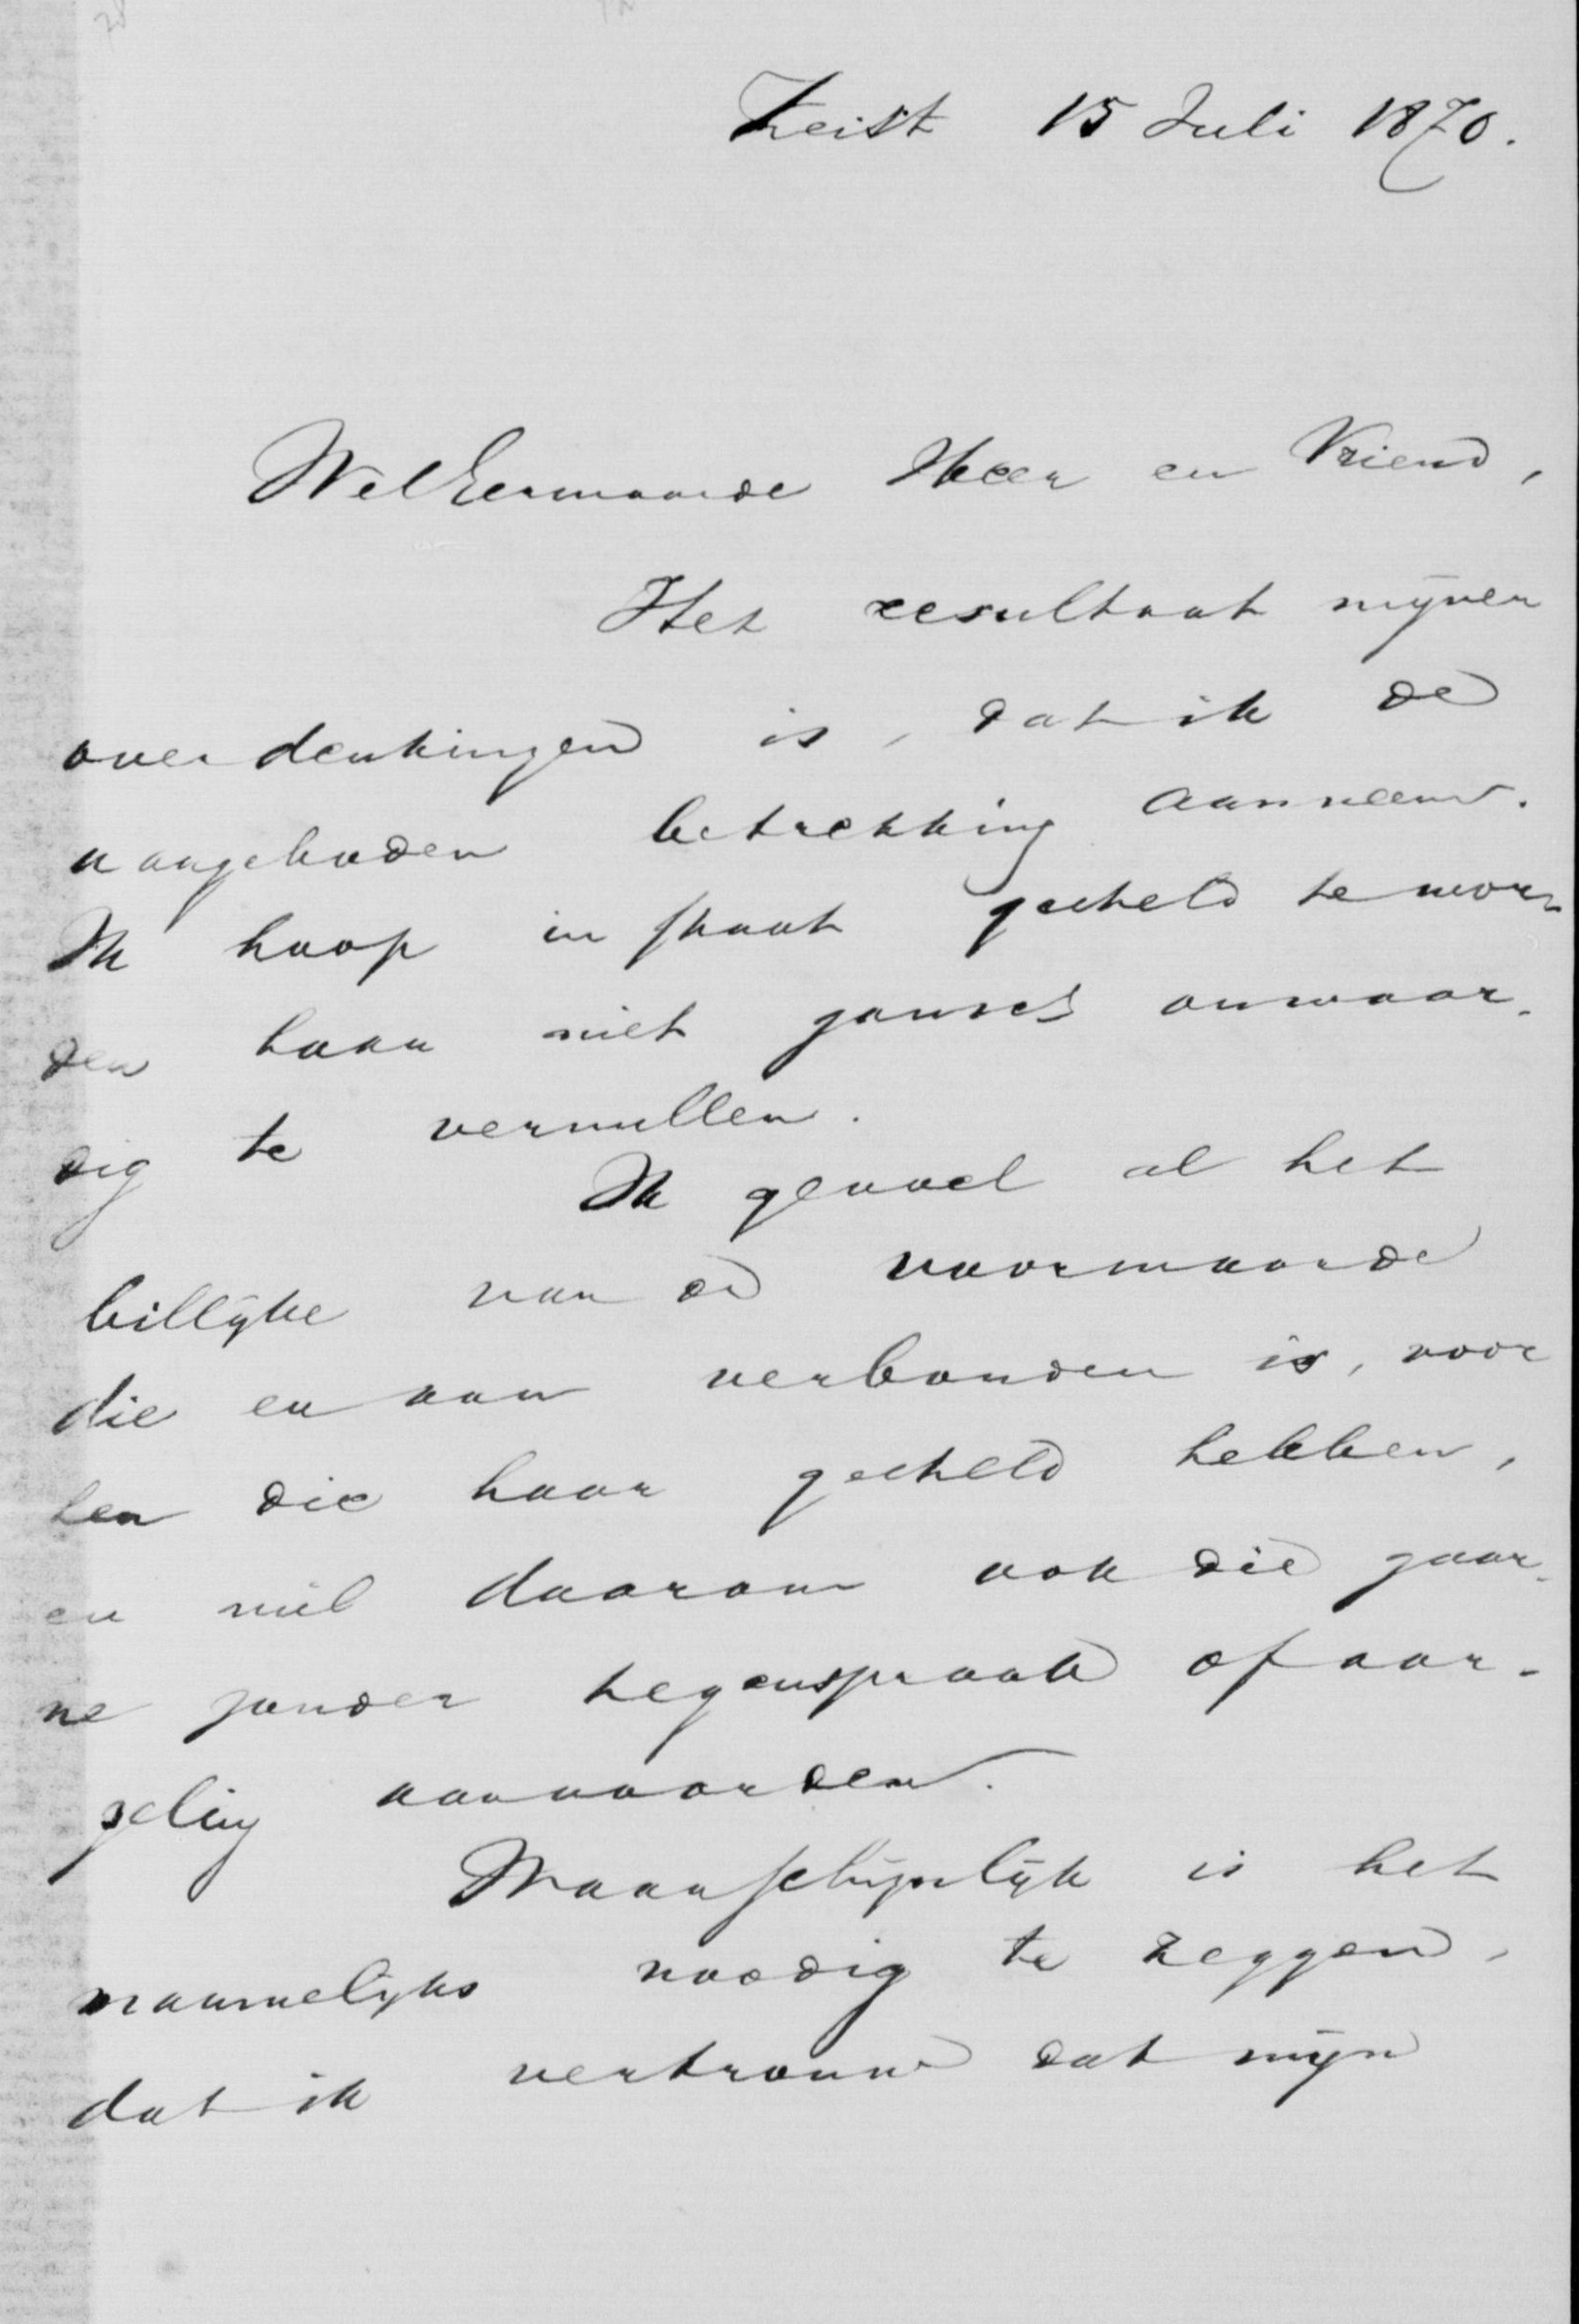 Zeist 15 Juli 1870.
WelEerwaarde Heer en Vriend,
Het resultaat mijner
overdenkingen is, dat ik de
aangeboden betrekking aanneem.
Ik hoop in staat gesteld te wor-
den haar niet gansch onwaar-
dig te vervullen.
Ik gevoel al het
billijke van de voorwaarde
die er aan verbonden is, voor
hen die haar gesteld hebben,
en wil daarom ook die gaar-
ne zonder tegenspraak of aar-
zeling aanvaarden.
Waarschijnlijk is het
nauwelijks noodig te zeggen,
dat ik vertrouw dat mijn